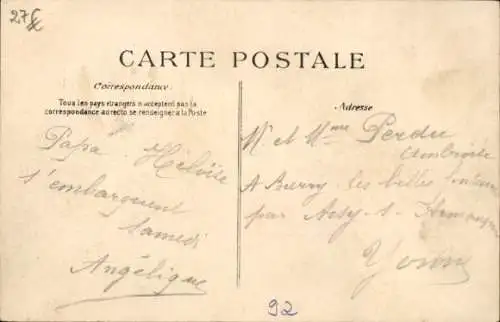 27
CARTE POSTALE
Correspondance
Tous les pays étrangers n'acceptent pas la
correspondance au recto se renseigner à la Poste
Papa Héloïse
s'embarquent
Samedi
Angélique
Adresse
Mr et Mme Perdu
A Bierry les belles
par Aisy s.
Yonne
92